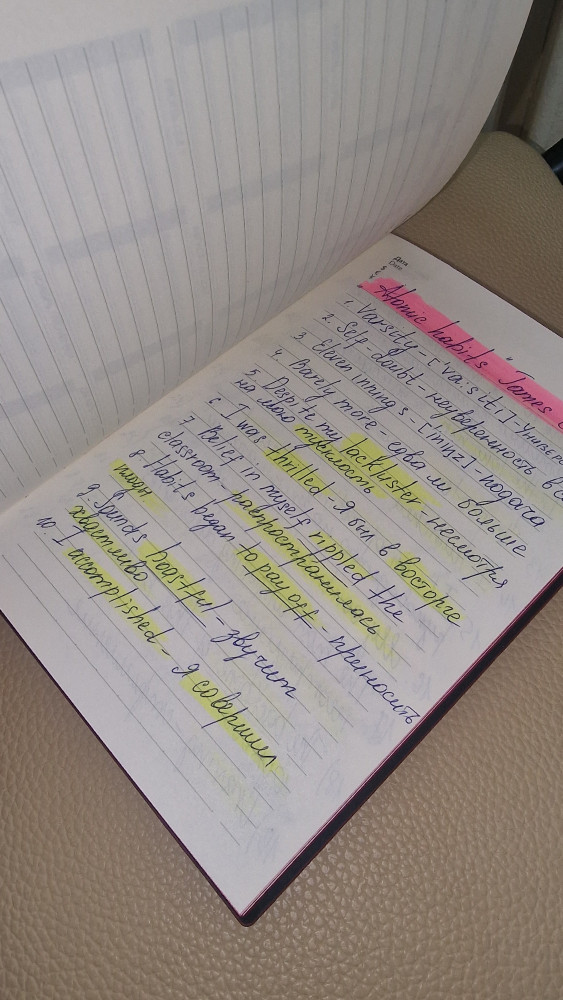 Дата
Date
"Atomic habits" James
1. Varsity - ['va:siti] - Универс
2. Self-doubt - неуверенность в с
3. Eleven innings - [ininz] - подача
4. Barely more - едва ли больше
5. Despite my lackluster - несмотря
на мою тусклость
6. I was thrilled - я был в восторге
7. Belief in myself rippled the
classroom распространилась
8. Habits began to pay off - приносить
плоды
9. Sounds boastful - звучит
хвастливо
10. I accomplished - я совершил